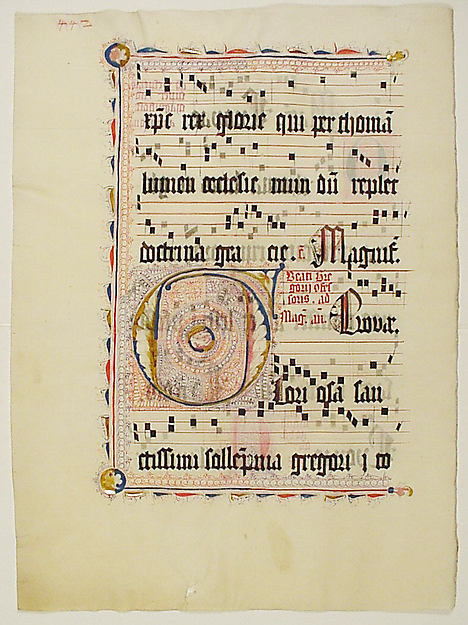 xp̄e rex glorie qui per thomā
lumen ecclesie mun dū replet
doctrina gra cie. Magnif̄.
Beati Gre
gorii cōfes
soris. ad
Mag. an. Euouae.
Glori osa san
ctissimi sollēpnia gregori j to